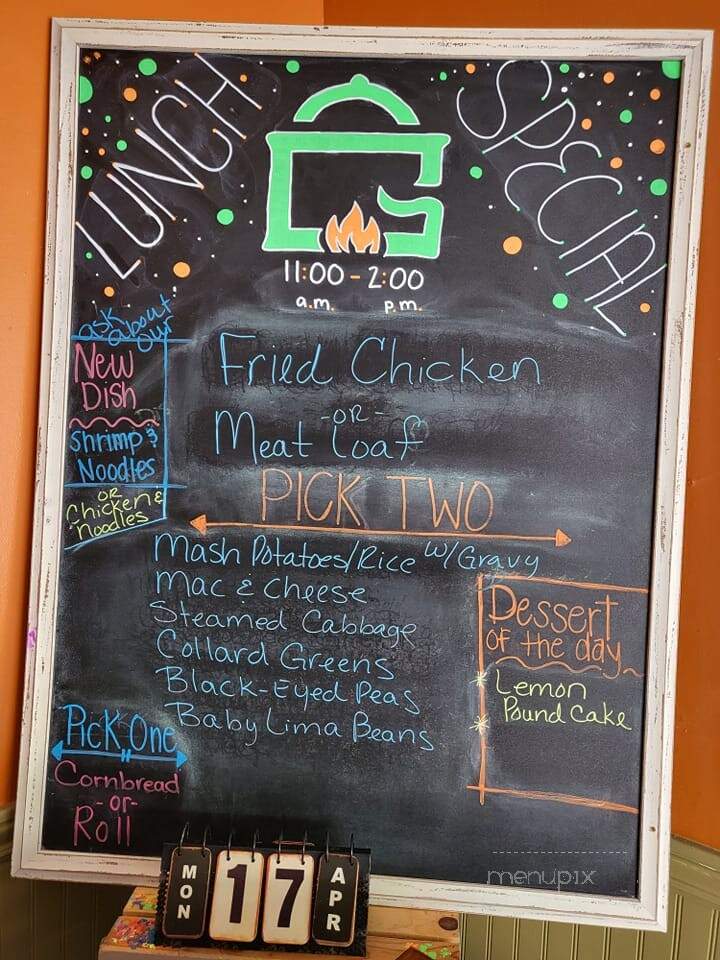 LUNCH
SPECIAL
11:00 - 2:00
a.m. p.m.
ask
about
our
New
Dish
Shrimp &
Noodles
OR
Chicken &
Noodles
Fried Chicken
- OR -
Meat Loaf
PICK TWO
Mash Potatoes/Rice w/Gravy
Mac & Cheese
Steamed Cabbage
Collard Greens
Black-Eyed Peas
Baby Lima Beans
Dessert
of the day
* Lemon
* Pound Cake
Pick One
Cornbread
- or -
Roll
MON 17 APR
menupix